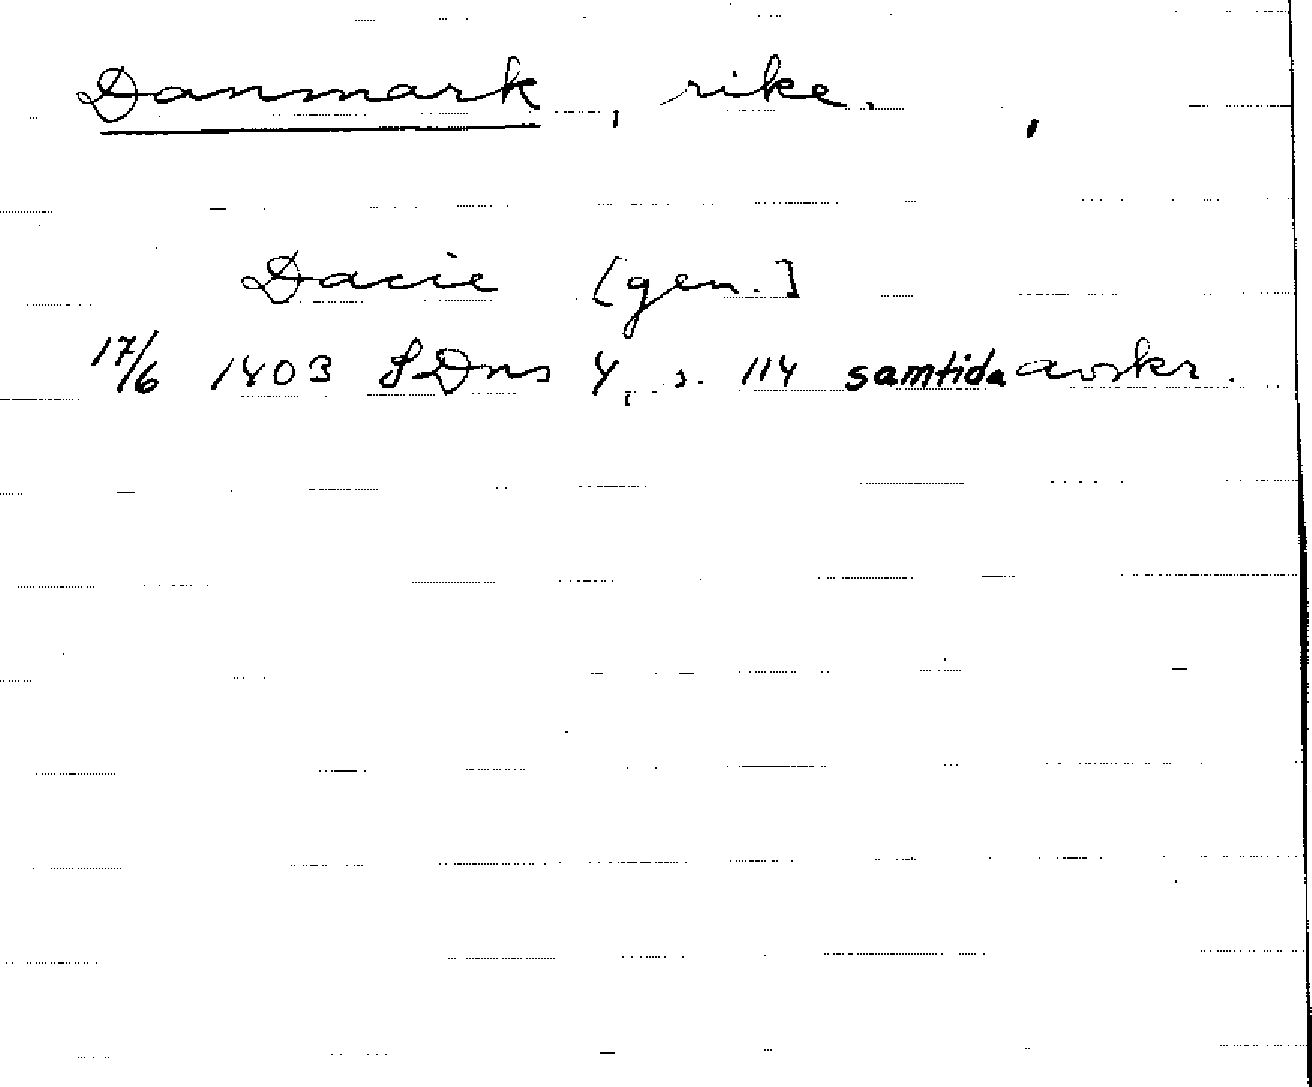 Danmark, rike.
Dacie [gen.]
17/6 1403 SDns 4, s. 114 samtida avskr.